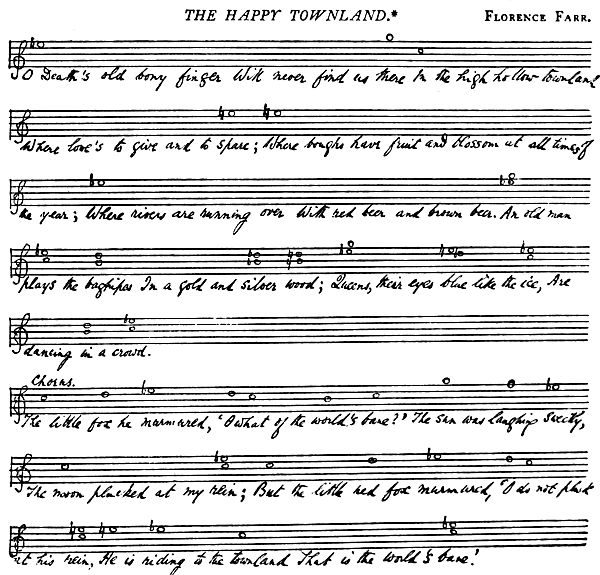 THE HAPPY TOWNLAND.* FLORENCE FARR.
O Death's old bony finger Will never find us there In the high hollow townland
Where love's to give and to spare; Where boughs have fruit and blossom at all times of
the year; Where rivers are running over With red beer and brown beer. An old man
plays the bagpipes In a gold and silver wood; Queens, their eyes blue like the ice, Are
dancing in a crowd.
Chorus.
The little fox he murmured, 'O what of the world's bane?' The sun was laughing sweetly,
The moon plucked at my rein; But the little red fox murmured, 'O do not pluck
at his rein, He is riding to the townland That is the world's bane!'